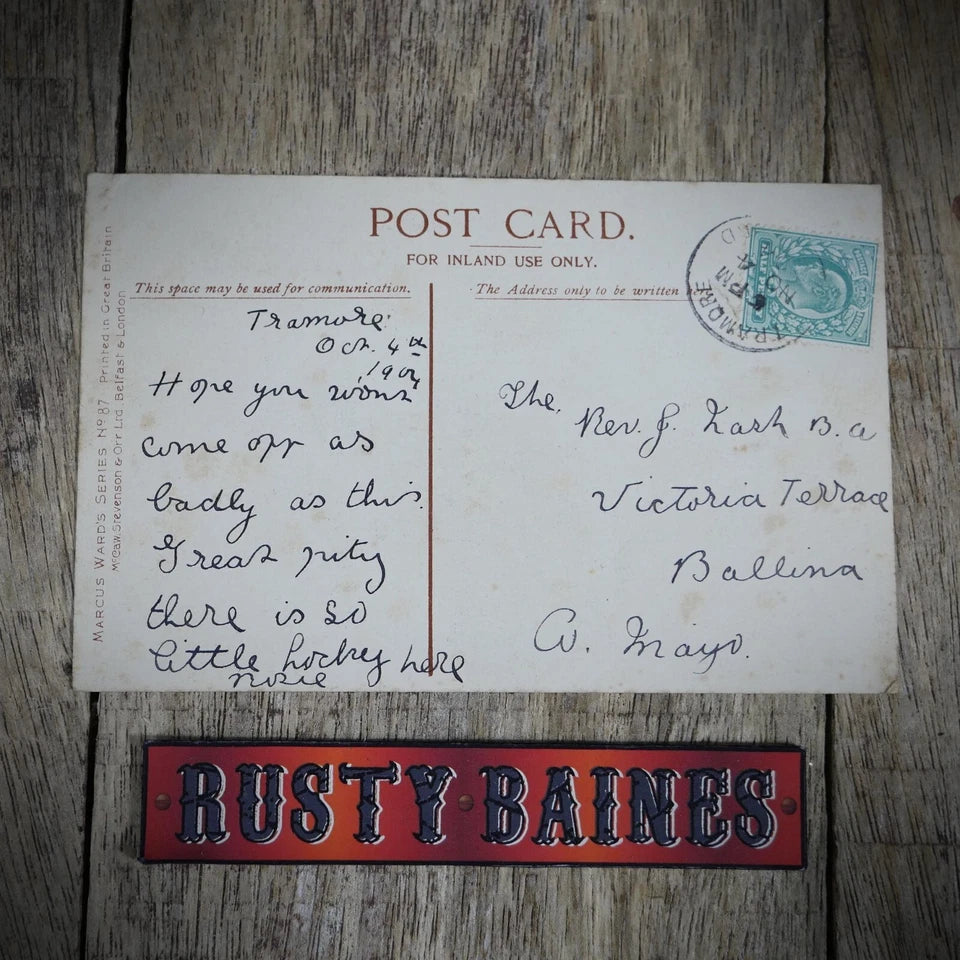 POST CARD.
FOR INLAND USE ONLY.
This space may be used for communication.
The Address only to be written
MARCUS WARD'S SERIES No 87 Printed in Great Britain
McCaw, Stevenson & Orr Ltd. Belfast & London
Tramore
Oct. 4th
Hope you wont
come off as
badly as this.
Great pity
there is so
little hockey here
TRAMORE
6 PM
NO 4
The.
Rev. J. Nash B.a
Victoria Terrace
Ballina
Co. Mayo.
RUSTY BAINES